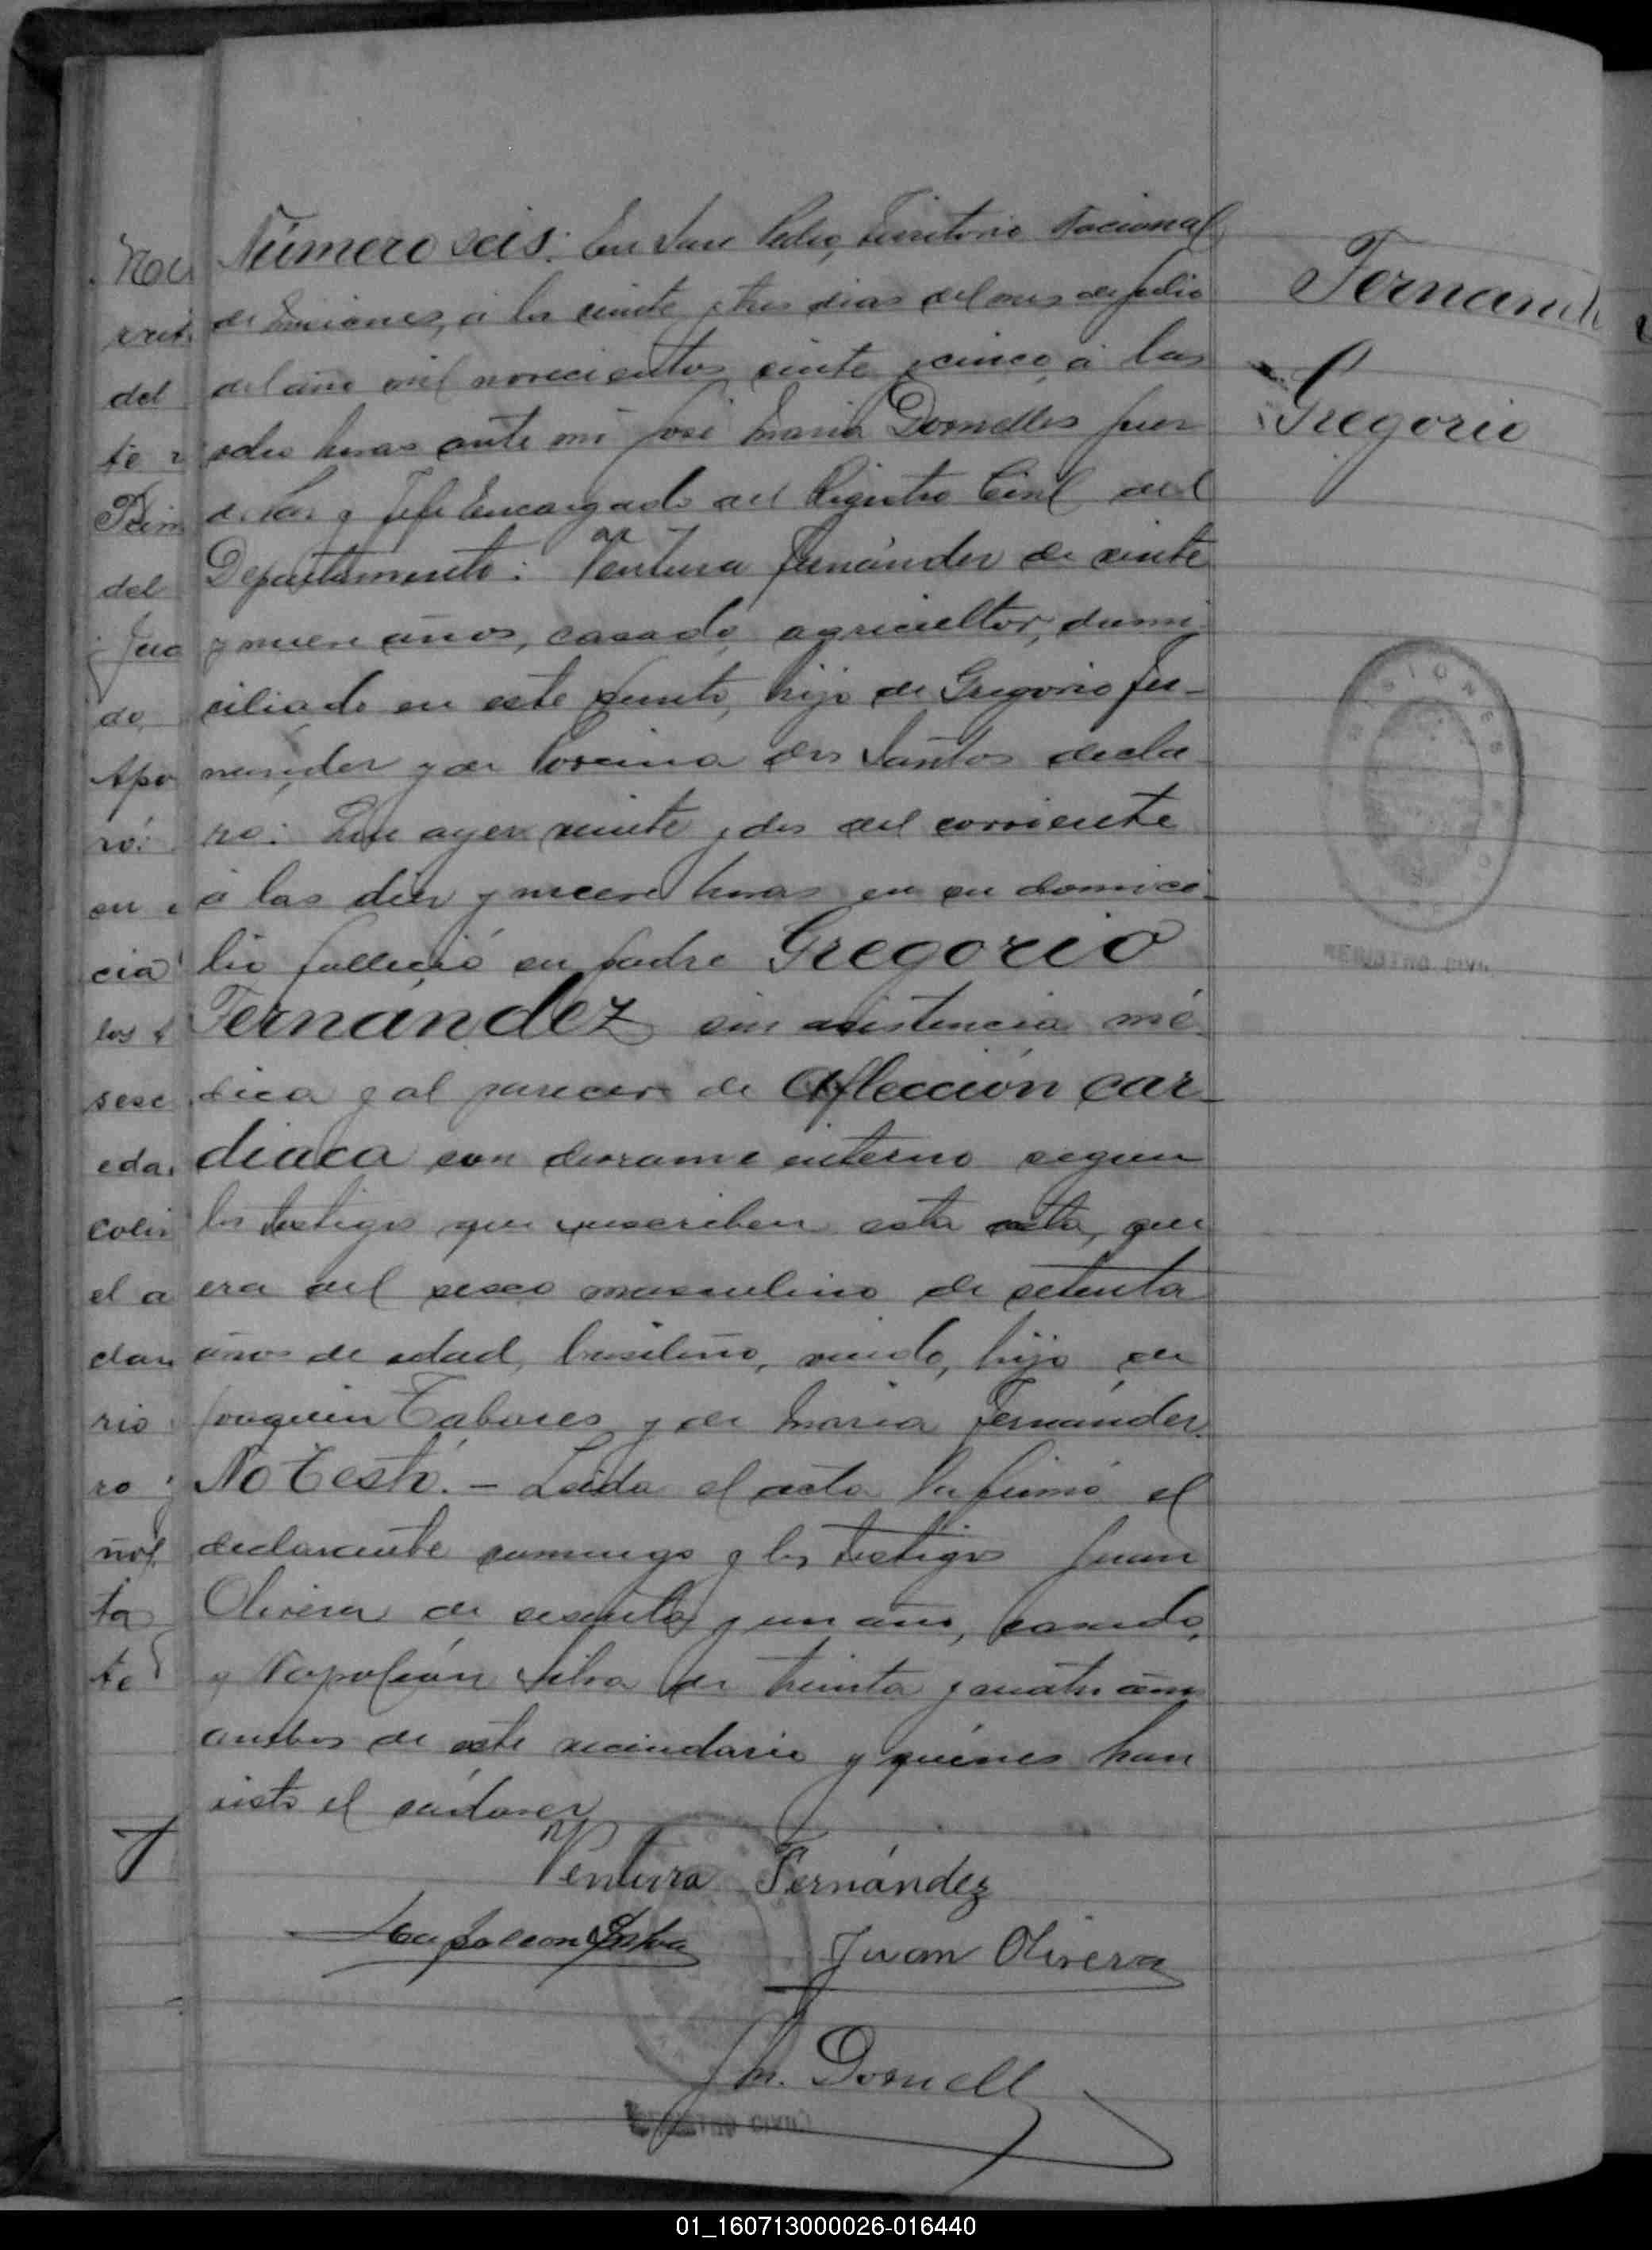 Número seis. En San Pedro, Territorio Nacional
de Misiones, á los veinte y tres dias del mes de Julio
del año mil novecientos veinte y cinco, á las
ocho horas ante mi José Maria Dornelles Juez
de Paz y Jefe Encargado del Registro Civil del
Departamento: Ventura Fernández de veinte
y nueve años, casado, agricultor, domi
ciliado en este punto, hijo de Gregorio Fer-
nández y de dos Santos decla
ró: Que ayer veinte y dos del corriente
á las diez y nueve horas en su domici-
lio falleció su padre Gregorio
Fernández sin asistencia mé
dica y al parecer de Afección car-
diaca con derrame interno segun
los testigos que suscriben esta acta, que
era del sexo masculino de setenta
años de edad, brasileño, viudo, hijo de
Joaquin Tabares y de Maria Fernández.
No Testó. - Leida el acta la firmó el
declarante conmigo y los testigos Juan
Olivera de sesenta y un año, casado,
y Napoleón Silva de treinta y cuatro años
ambos de este vecindario y quiénes han
visto el cadáver
Ventura Fernández
Napoleon Silva Juan Olivera
J M. Dornell
REGISTRO CIVIL
Fernand
Gregorio
MISIONES
REGISTRO CIVIL
del
te
del
do,
ró:
en
cia
los
sese
eda
el a
clar
rio
ro
ta
te
01_160713000026-016440